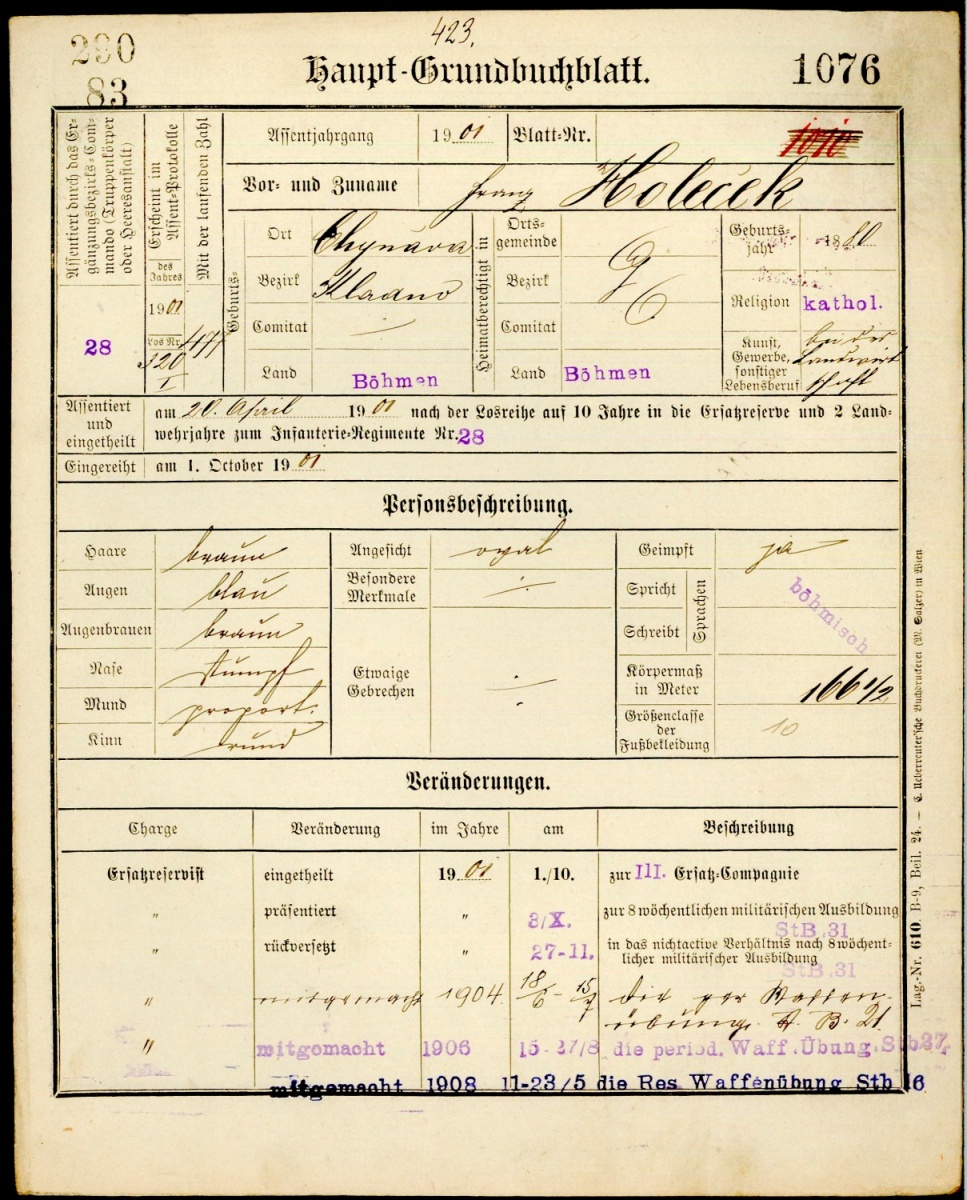 423.
290
83
Haupt-Grundbuchblatt.
1076
Assentiert durch das Er-
gänzungsbezirks-Com-
mando (Truppenkörper
oder Heeresanstalt)
28
Erscheint im
Assent-Protokolle
des
Jahres
1901
Los Nr.
120
I
Mit der laufenden Zahl
477
Assentjahrgang 1901 Blatt-Nr. 1010
Vor- und Zuname Franz Holeček
Geburts-
Ort Chynava
Bezirk Kladno
Comitat
Land Böhmen
Heimatberechtigt in
Orts-
gemeinde
Bezirk
Comitat
Land Böhmen
Geburts-
jahr 1880
Religion kathol.
Kunst,
Gewerbe,
sonstiger
Lebensberuf
bei der
Landwirt
schaft
Assentiert
und
eingetheilt
am 20. April 1901 nach der Losreihe auf 10 Jahre in die Ersatzreserve und 2 Land-
wehrjahre zum Infanterie-Regimente Nr. 28
Eingereiht am 1. October 1901
Personsbeschreibung.
Haare braun
Augen blau
Augenbrauen braun
Nase stumpf
Mund proport.
Kinn rund
Angesicht oval
Besondere
Merkmale ÷
Etwaige
Gebrechen ÷
Geimpft ja
Spricht
Schreibt
Sprachen
böhmisch
Körpermaß
in Meter 166 1/2
Größenclasse
der
Fußbekleidung 10
Veränderungen.
Charge Veränderung im Jahre am Beschreibung
Ersatzreservist eingetheilt 1901 1./10. zur III. Ersatz-Compagnie
" präsentiert " 3/X. zur 8 wöchentlichen militärischen Ausbildung
StB.31
" rückversetzt " 27-11. in das nichtactive Verhältnis nach 8 wöchent-
licher militärischer Ausbildung
StB.31
" mitgemacht 1904 18/6 - 15/7 die per Waffen-
übung. A. B. 21.
" mitgemacht 1906 15-27/8 die period. Waff.Übung Stb27.
mitgemacht 1908 11-23/5 die Res Waffenübung Stb 16
Lag.-Nr. 610. B-9, Beil. 24. — C. Ueberreuter'sche Buchdruckerei (M. Salzer) in Wien